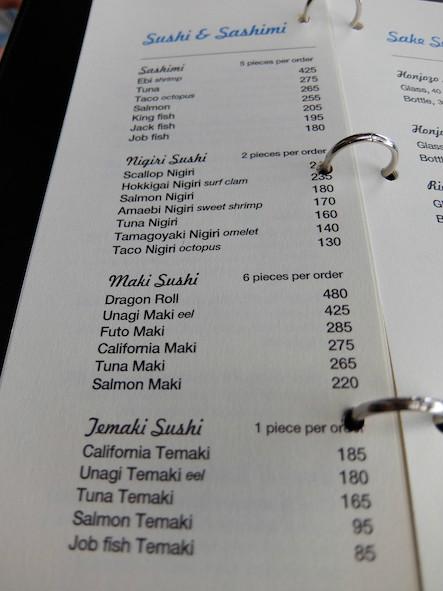 Sushi & Sashimi
Sashimi 5 pieces per order
Ebi shrimp 425
Tuna 275
Taco octopus 265
Salmon 255
King fish 205
Jack fish 195
Job fish 180
Nigiri Sushi 2 pieces per order
Scallop Nigiri
Hokkigai Nigiri surf clam 235
Salmon Nigiri 180
Amaebi Nigiri sweet shrimp 170
Tuna Nigiri 160
Tamagoyaki Nigiri omelet 140
Taco Nigiri octopus 130
Maki Sushi 6 pieces per order
Dragon Roll 480
Unagi Maki eel 425
Futo Maki 285
California Maki 275
Tuna Maki 265
Salmon Maki 220
Temaki Sushi 1 piece per order
California Temaki 185
Unagi Temaki eel 180
Tuna Temaki 165
Salmon Temaki 95
Job fish Temaki 85
Sake
Honjozo
Glass, 40
Bottle, 3
Glass